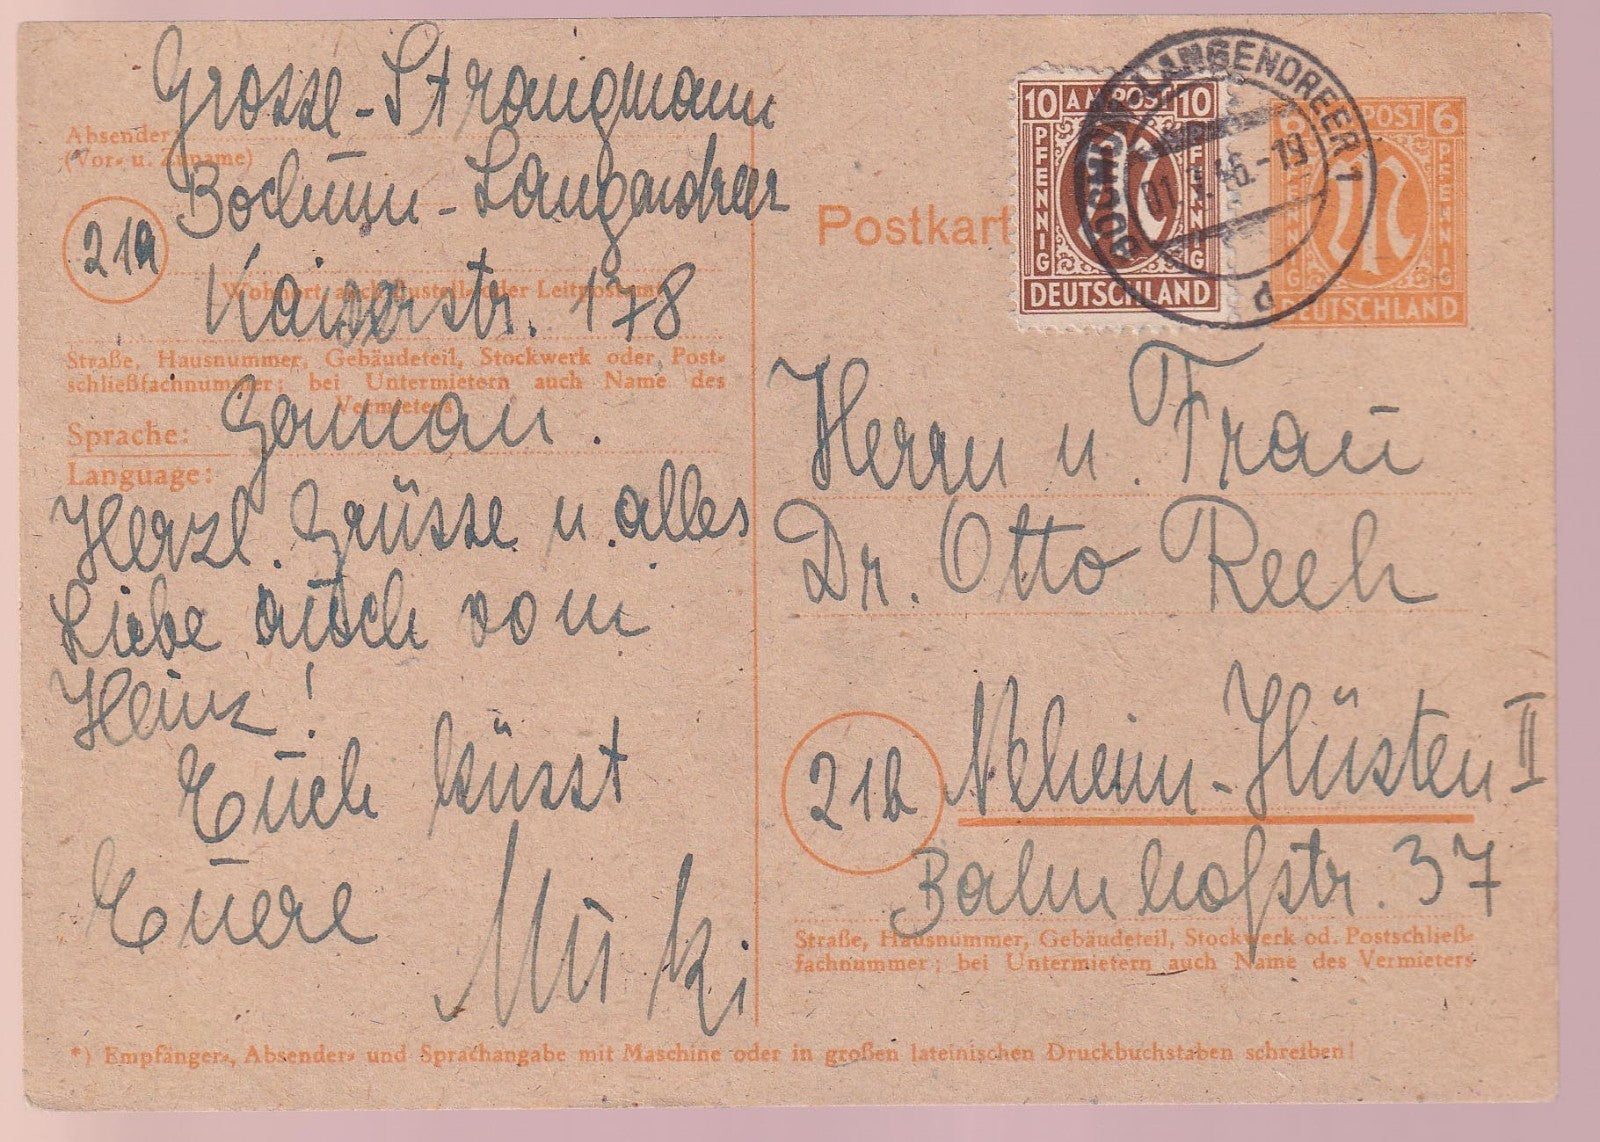 Grosse-Strangmann
Absender:
(Vor- u. Zuname)
Bochum-Langendreer
21a
Wohnort, auch Zustell- oder Leitpostamt
Kaiserstr. 178
Straße, Hausnummer, Gebäudeteil, Stockwerk oder Post-
schließfachnummer; bei Untermietern auch Name des
Vermieters
Sprache: German.
Language:
Herzl. Grüsse u. alles
Liebe auch vom
Heinz!
Euch küsst
Euere
Postkart
10 AM POST 10
PFENNIG
PFENNIG
DEUTSCHLAND
BOCHUM-LANGENDREER 1
46.-19
d
6 POST 6
PFENNIG
DEUTSCHLAND
Herrn u. Frau
Dr. Otto Reeh
21b Neheim-Hüsten II
Bahnhofstr. 37
Straße, Hausnummer, Gebäudeteil, Stockwerk od. Postschließ-
fachnummer; bei Untermietern auch Name des Vermieters
*) Empfänger-, Absender- und Sprachangabe mit Maschine oder in großen lateinischen Druckbuchstaben schreiben!